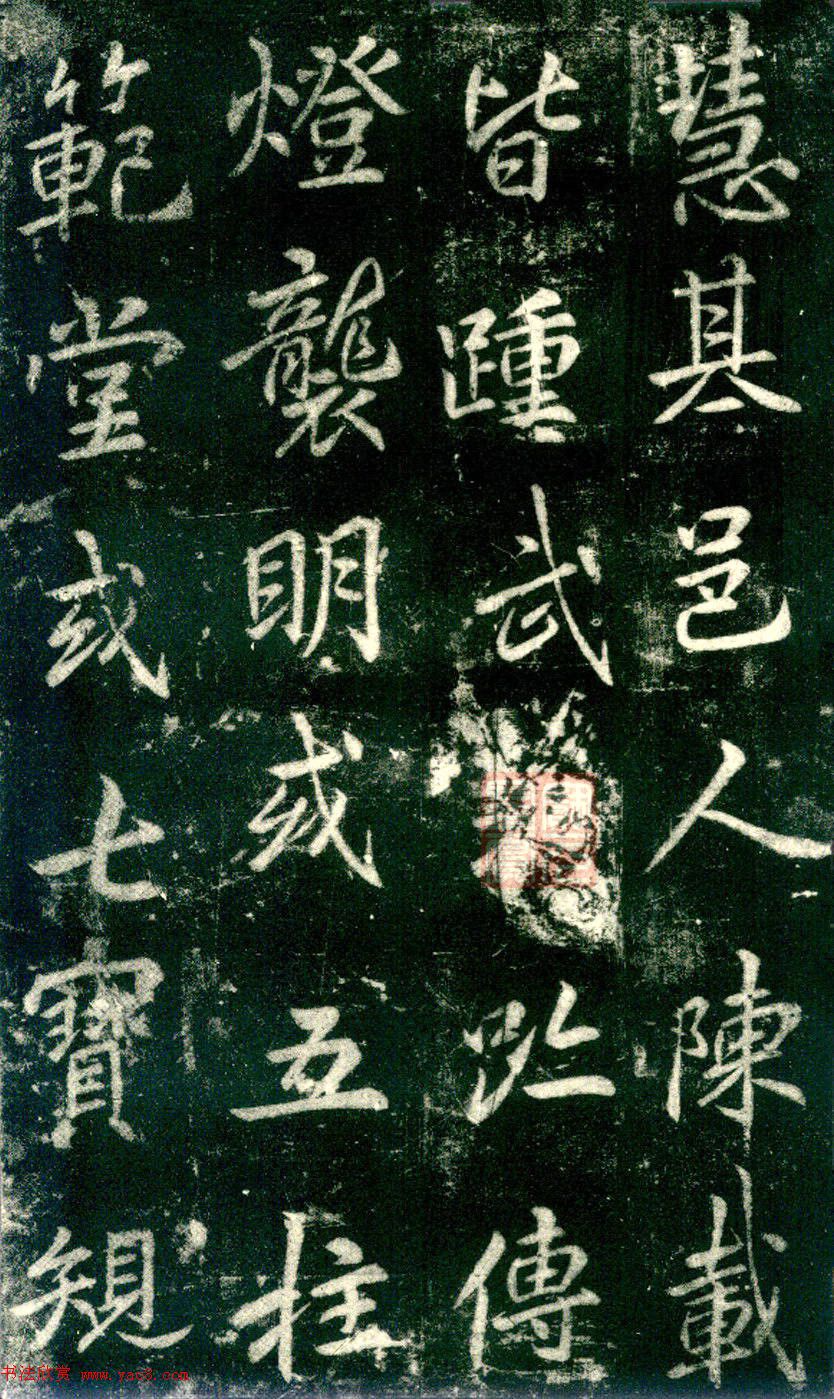 慧基邑人陳載
皆踵武趾傳
燈襲明或五柱
範堂或七寶規
书法欣赏 www.yac8.com